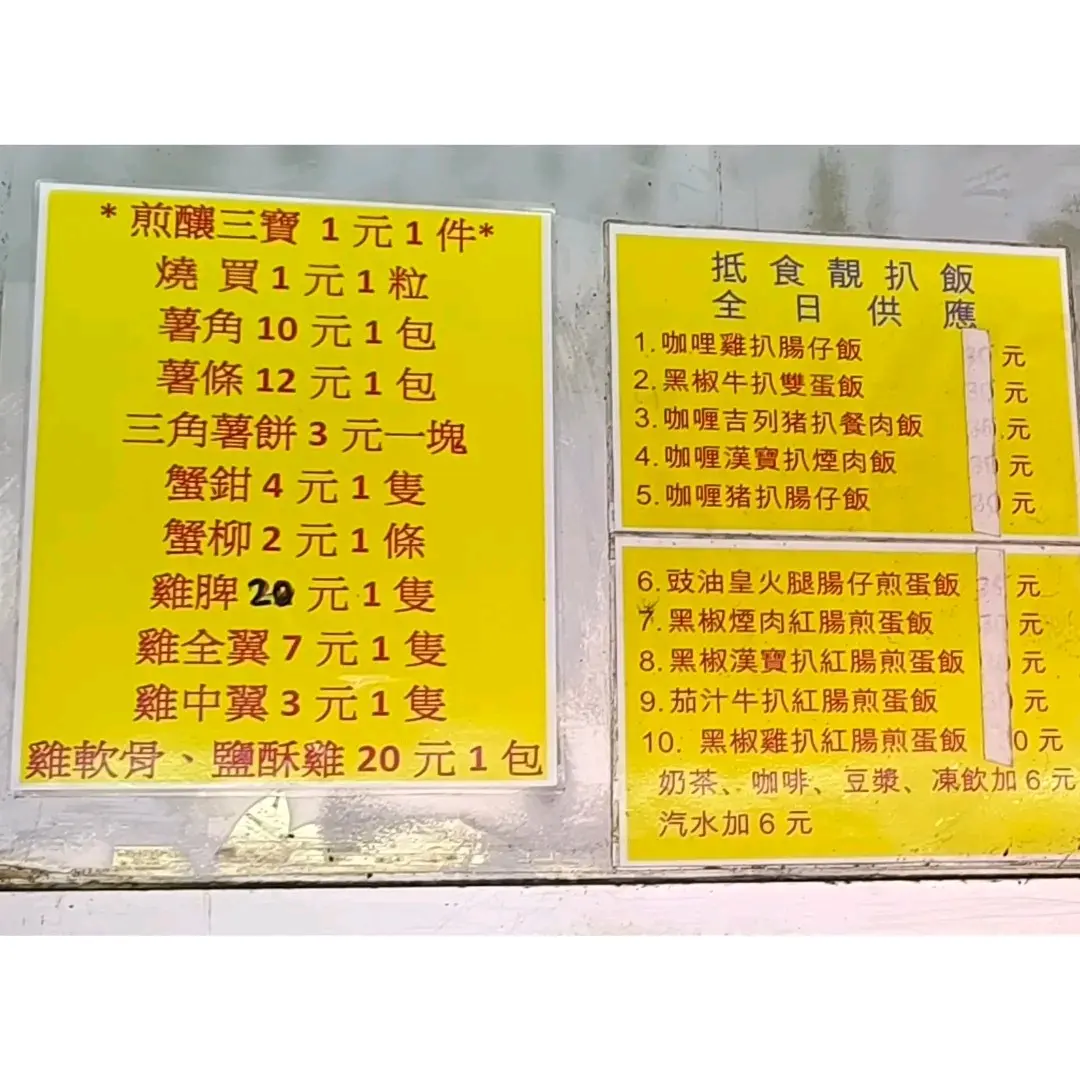 *煎釀三寶 1 元 1 件*
燒 買 1 元 1 粒
薯角 10 元 1 包
薯條 12 元 1 包
三角薯餅 3 元一塊
蟹鉗 4 元 1 隻
蟹柳 2 元 1 條
雞脾 20 元 1 隻
雞全翼 7 元 1 隻
雞中翼 3 元 1 隻
雞軟骨、鹽酥雞 20 元 1 包
抵 食 靚 扒 飯
全 日 供 應
1. 咖哩雞扒腸仔飯 元
2. 黑椒牛扒雙蛋飯 元
3. 咖喱吉列猪扒餐肉飯 元
4. 咖喱漢寶扒煙肉飯 30 元
5. 咖喱猪扒腸仔飯 30 元
6. 豉油皇火腿腸仔煎蛋飯 元
7. 黑椒煙肉紅腸煎蛋飯 元
8. 黑椒漢寶扒紅腸煎蛋飯 元
9. 茄汁牛扒紅腸煎蛋飯 元
10. 黑椒雞扒紅腸煎蛋飯 0 元
奶茶、咖啡、豆漿、凍飲加 6 元
汽水加 6 元